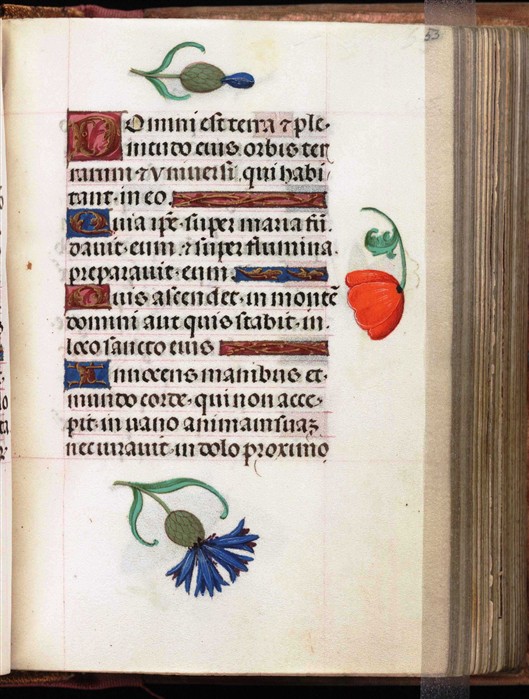 53
Domini est terra ⁊ ple-
nitudo eius. orbis ter
rarum ⁊ vniuersi. qui habi
tant in eo.
Quia ip̃e super maria fū
dauit eum. ⁊ super flumina
preparauit eum
Quis ascendet in montē
domini aut quis stabit in
loco sancto eius
Innocens manibus et
mundo corde. qui non acce-
pit in uano animam suaꝫ
nec iurauit in dolo proximo